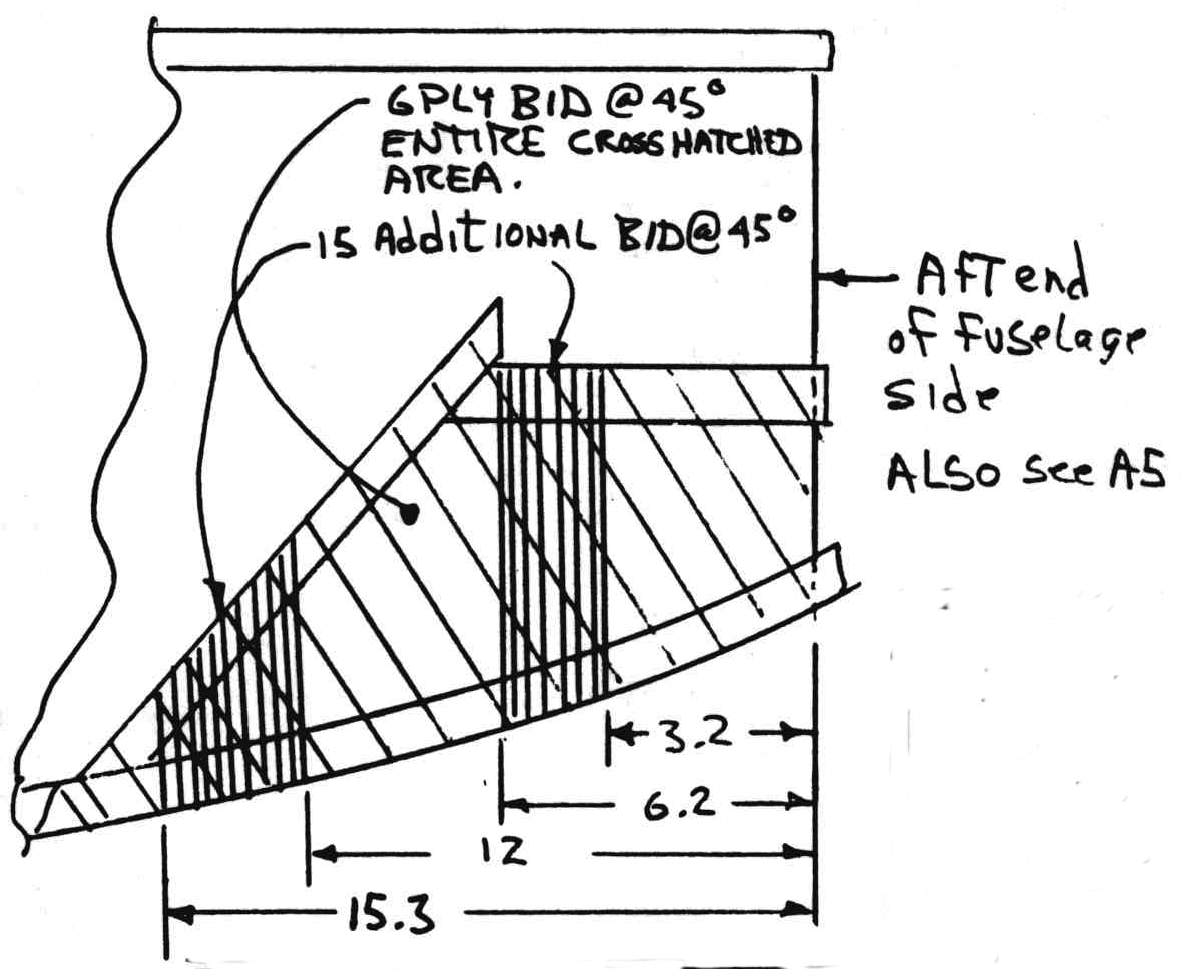 6PLY BID @ 45°
ENTIRE CROSSHATCHED
AREA.
15 AddITIONAL BID@45°
AFT end
of fuselage
side
ALSO see A5
3.2
6.2
12
15.3